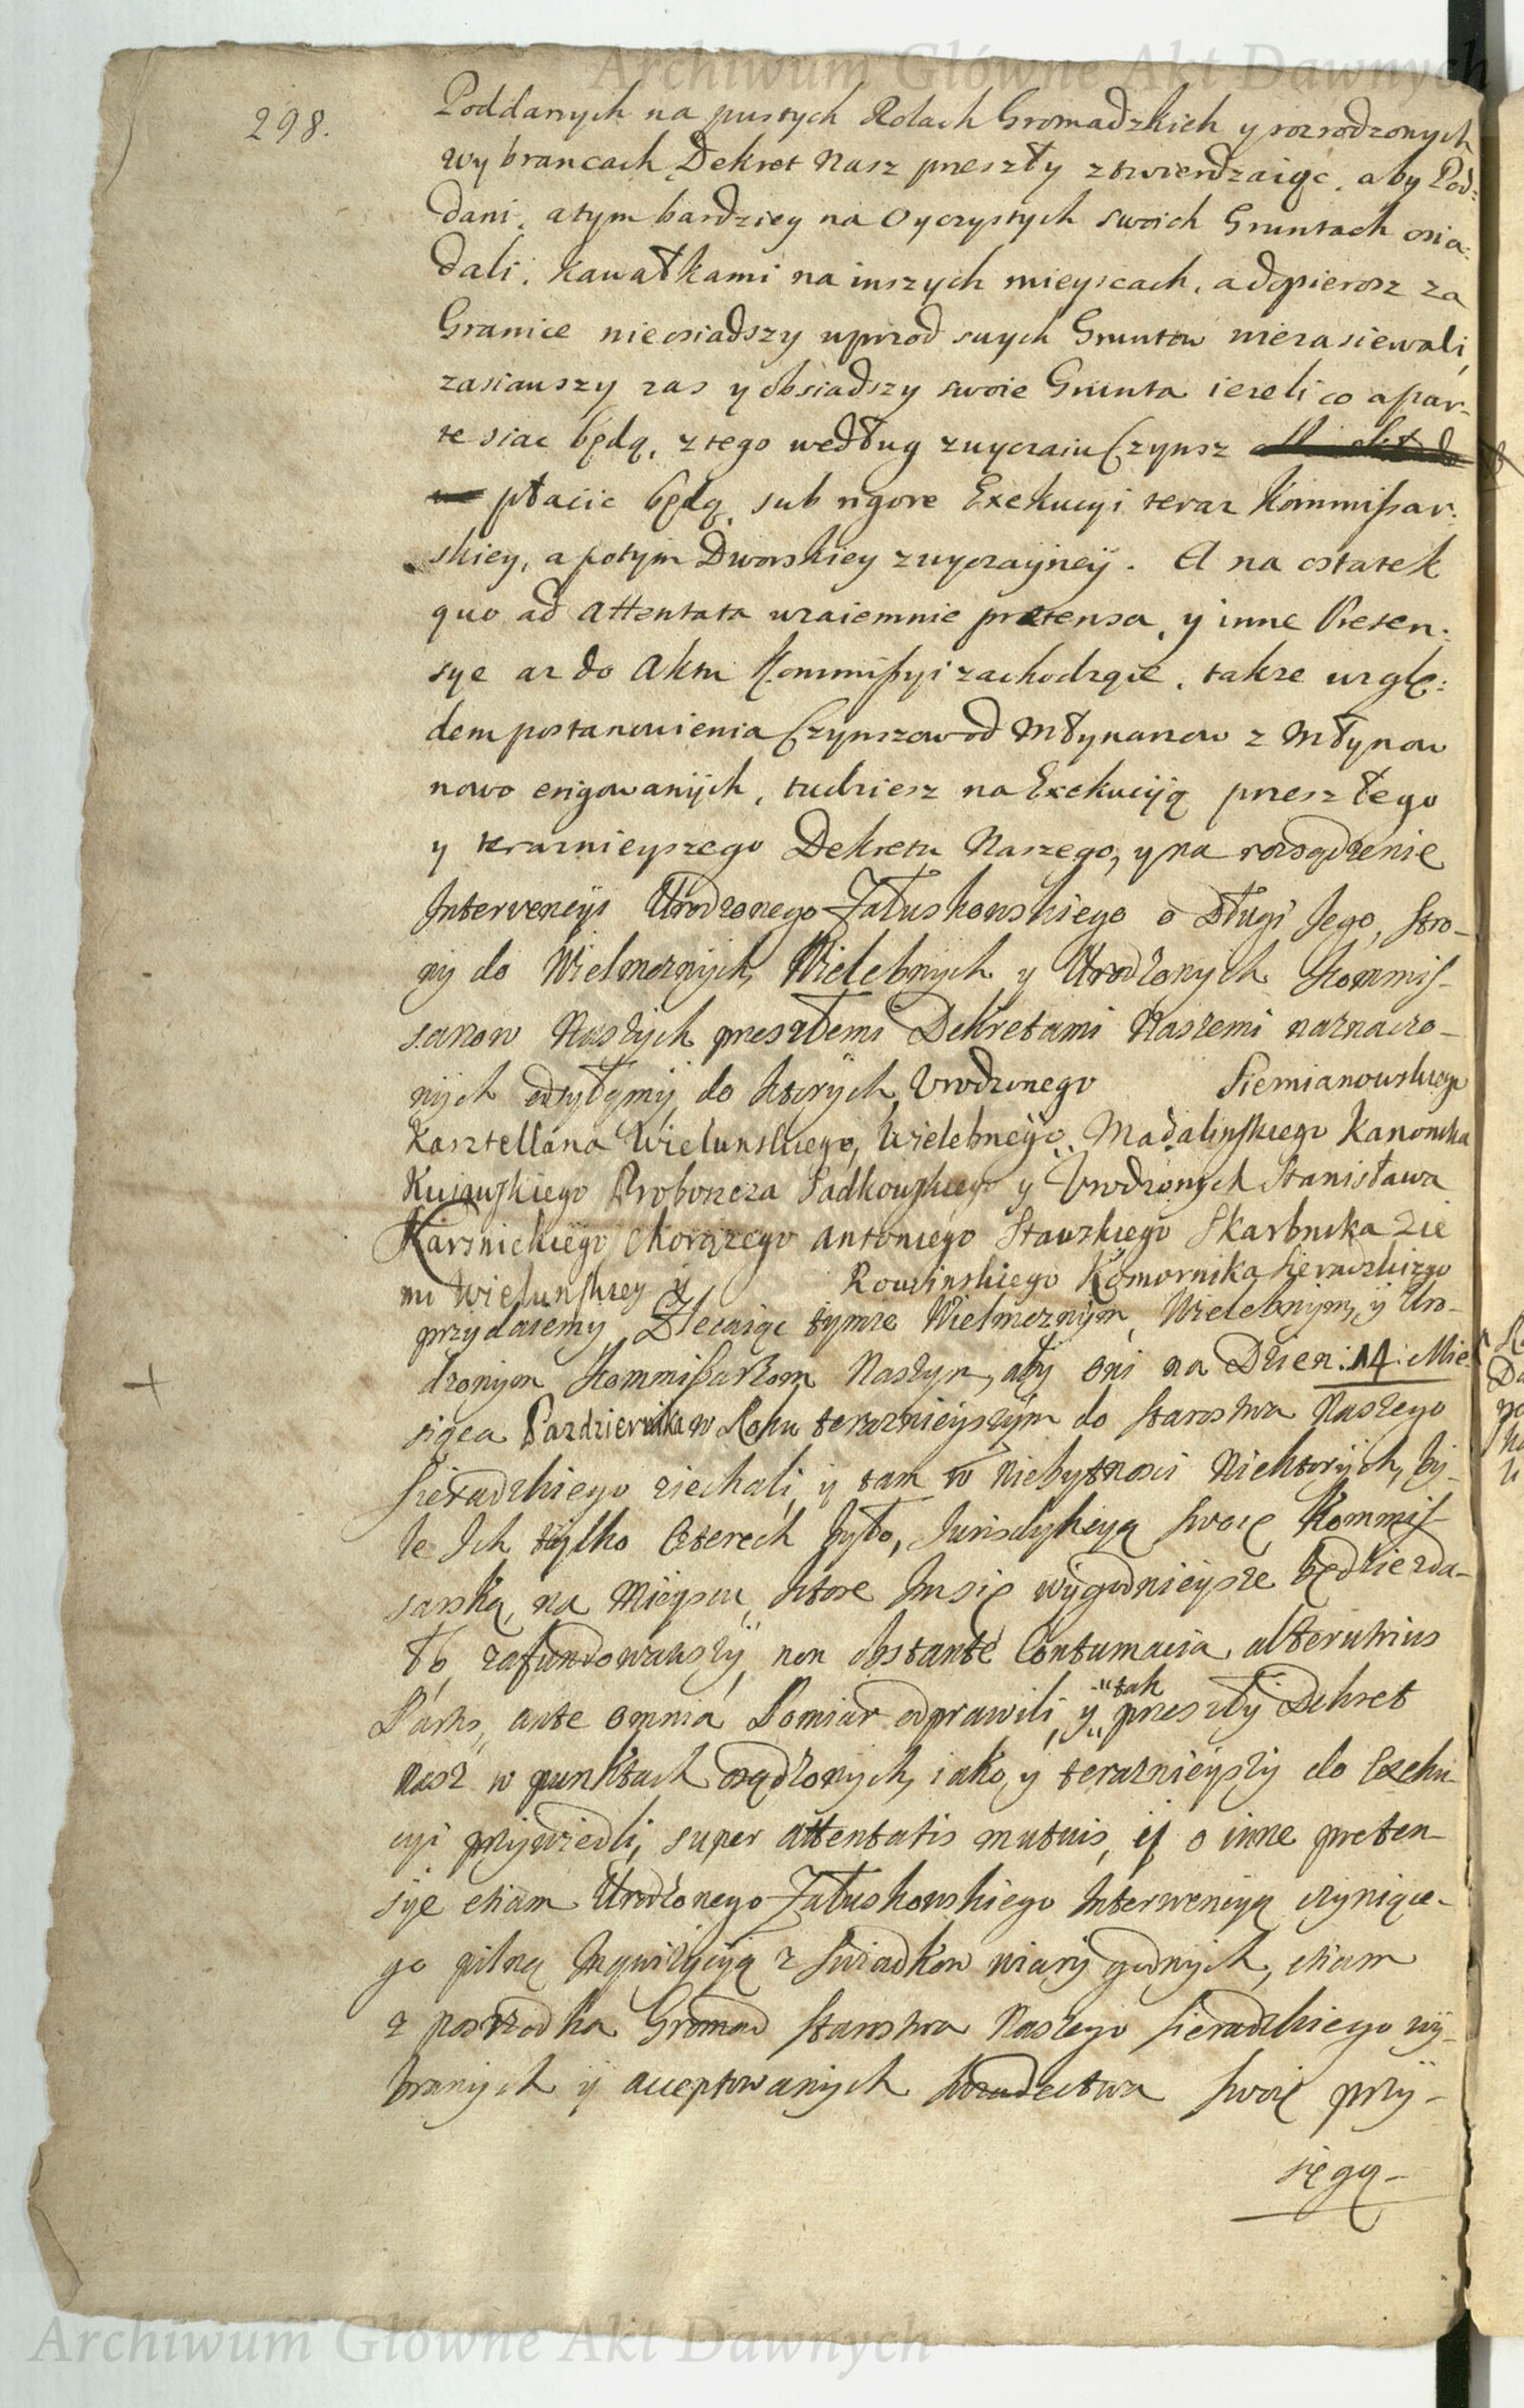 Archiwum Główne Akt Dawnych
298.
Poddanych na pustych Rolach Gromadzkich y rozrodzonych
wybrancach, Dekret Nasz przeszły ztwierdzaiąc, aby Pod=
dani, a tym bardziey na Oyczystych swoich Gruntach osia=
dali, kawałkami na inszych mieyscach, a dopierosz za
Granice nieosiadszy uprzod swych Gruntow niezasiewali,
zasiawszy zas y obsiadszy swoie Grunta iezeli co apar-
te siac będą, z tego według zwyczaiu Czynsz
płacic będą, sub rigore Exekucyi teraz Kommissar=
skiey, a potym Dworskiey zwyczayney. A na ostatek
quo ad Attentata wzaiemnie prætensa, y inne Preten=
sye az do Aktu Kommissyi zachodzące, takze wzglę=
dem postanowienia Czynszow od Młynarzow z Młynow
nowo erigowanych, tudziesz na Exekucyią przeszłego
y teraznieyszego Dekretu Naszego, y na rozsądzenie
Interwencyi Urodzonego Załuskowskiego o Długi Jego, Stro-
ny do Wielmoznych, Wielebnych y Urodzonych Kommis-
sarzow Naszych przeszłemi Dekretami Naszemi naznaczo-
nych odsyłamy, do ktorych, Urodzonego Siemianowskiego
Kasztellana Wielunskiego, Wielebnego Madalinskiego Kanonika
Kuiawskiego Proboszcza Sadkowskiego y Urodzonych Stanisława
Karsnickiego Chorązego Antoniego Stawskiego Skarbnika Zie
mi Wielunskiey y Rowinskiego Komornika Sieradzkiego
przydaiemy Zlecaiąc tymze Wielmoznym, Wielebnym, y Uro-
dzonym Kommissarzom Naszym, aby oni na Dzien 14 Mie-
siąca Pazdziernika w Roku teraznieyszym do Starostwa Naszego
Sieradzkiego ziechali, y tam w niebytnosci Niektorych, by-
le Ich tylko Czterech było, Jurisdykcyą swoię Kommis-
sarską, na Mieyscu, ktore Im się wygodnieysze będzie zda-
ło, zafundowawszy, non obstante Contumacia alterutrius
Partis, ante omnia Pomiar odprawili, y tak przeszły Dekret
Nasz w punktach osądzonych, iako y teraznieyszy do Exeku-
cyi przywiedli, super attentatis mutuis, y o inne preten-
sye etiam Urodzonego Załuskowskiego Interwencyą czyniące-
go pilną Inquizycyią z Swiadkow wiary godnych, etiam
z posrzodka Gromad Starostwa Naszego Sieradzkiego wy-
branych y acceptowanych swiadectwa swoie przy-
sięgą-
Archiwum Główne Akt Dawnych